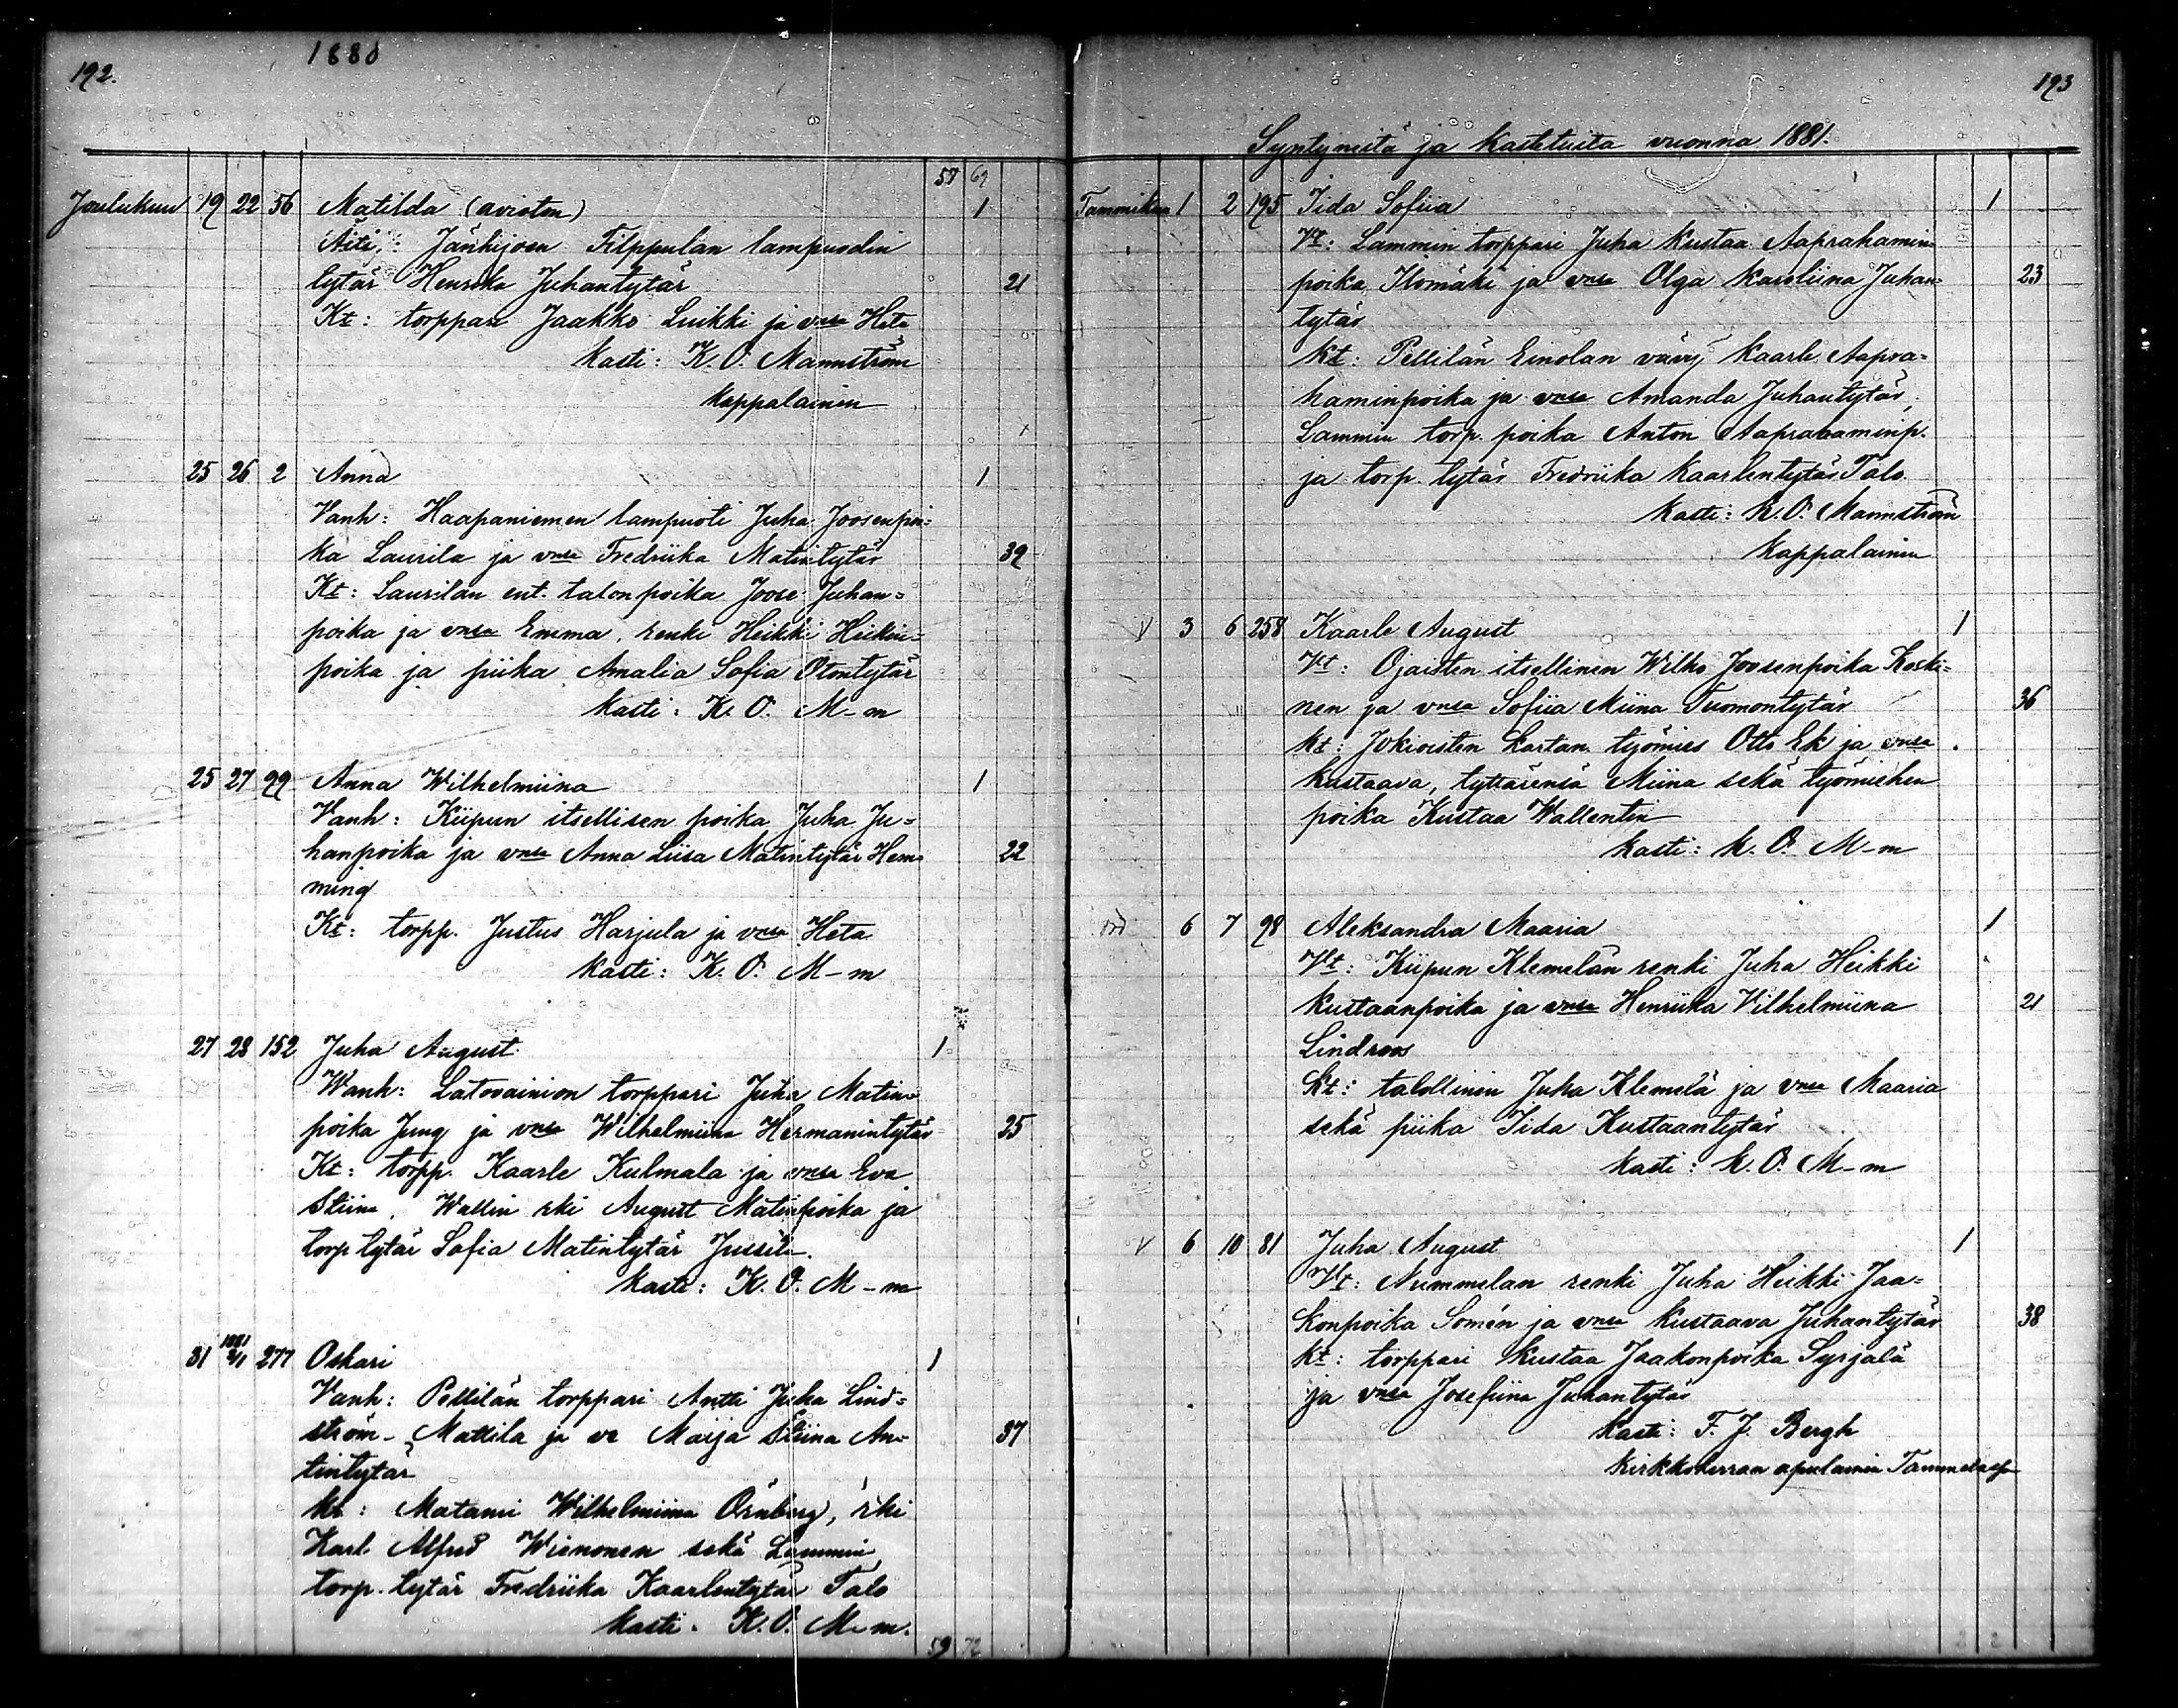 192.
1880
57 69
Joulukuu 19 22 56 Matilda (avioton) 1
Äiti: Jänhijoen Filppulan lampuodin
tytär Henrika Juhantytär 21
Kt: torppari Jaakko Luikki ja vnsa Heta
Kasti: K. O. Mannström
Kappalainen
25 26 2 Anna 1
Vanh: Haapaniemen lampuoti Juha Joosenpoi=
ka Laurila ja vnsa Fredriika Matintytär 39
Kt: Laurilan ent. talonpoika Joose Juhan=
poika ja vnsa Emma, renki Heikki Heikin=
poika ja piika Amalia Sofia Otontytär
Kasti: K. O. M-m
25 27 99 Anna Wilhelmiina 1
Vanh: Kiipun itsellisen poika Juha Ju=
hanpoika ja vnsa Anna Liisa Matintytär Hem= 22
ming
Kt: torpp. Justus Harjula ja vnsa Heta
Kasti: K. O. M-m
27 28 152 Juha August 1
Wanh: Latovainion torppari Juha Matin=
poika Jung ja vnsa Wilhelmiina Hermanintytär 25
Kt: torpp. Kaarle Kulmala ja vnsa Eva
Stiina, Wallin rki August Matinpoika ja
torp tytär Sofia Matintytär Jussila.
Kasti: K. O. M-m
31 1881 2/1 277 Oskari 1
Vanh: Pellilän torppari Antti Juha Lind=
ström-Mattila ja vv Maija Stiina An= 37
tintytär
Kt: Matami Wilhelmiina Örnberg, rki
Karl Alfred Wienonen sekä Lammin
torp. tytär Fredriika Kaarlentytär Talo
Kasti. K. O. M-m.
59 72
193
Syntyneitä ja Kastetuita vuonna 1881.
Tammikuu 1 2 195 Iida Sofiia 1
Vt: Lammin torppari Juha Kustaa Aaprahamin=
poika Ilomäki ja vnsa Olga Karoliina Juhan= 23
tytär
Kt: Pellilän Einolan vävy Kaarle Aapra=
haminpoika ja vnsa Amanda Juhantytär,
Lammin torp. poika Anton Aaprahaminp.
ja torp. tytär Fredriika Kaarlentytär Talo.
Kasti: K. O. Mannström
Kappalainen
V 3 6 258 Kaarle August 1
Vt: Ojaisten itsellinen Wilho Joosenpoika Koski=
nen ja vnsa Sofiia Miina Tuomontytär 36
Kt: Jokioisten Kartan. työmies Otto Ek ja vnsa
Kustaava, tyttärensä Miina sekä työmiehen
poika Kustaa Wallentin
Kasti: K. O. M-m
6 7 98 Aleksandra Maaria 1
Vt: Kiipun Klemelän renki Juha Heikki
Kustaanpoika ja vnsa Henriika Vilhelmiina 21
Lindroos
Kt: talollinen Juha Klemelä ja vnsa Maaria
sekä piika Iida Kustaantytär
Kasti: K. O. M-m
V 6 10 81 Juha August 1
Vt: Nummelan renki Juha Heikki Jaa=
konpoika Somén ja vnsa Kustaava Juhantytär 38
Kt: torppari Kustaa Jaakonpoika Syrjälä
ja vnsa Josefiina Juhantytär
Kasti: F. J. Bergh
Kirkkoherran apulainen
2 2